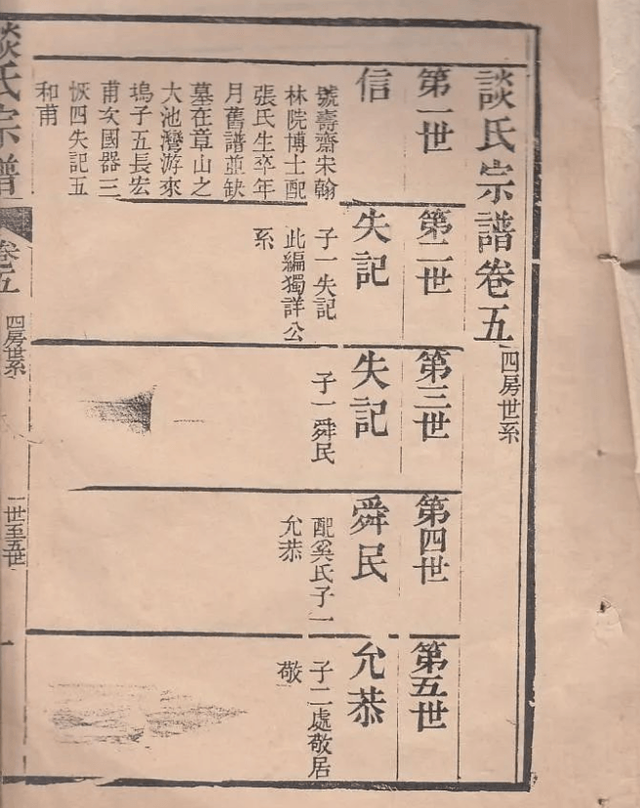 談氏宗譜卷五
四房世系
第一世
信
號壽齋宋翰
林院博士配
張氏生卒年
月舊譜並缺
墓在章山之
大池灣游來
塢子五長宏
甫次國器三
恢四失記五
和甫
第二世
失記
子一失記
此編獨詳公
系
第三世
失記
子一舜民
第四世
舜民
配奚氏子一
允恭
第五世
允恭
子二處敬居
敬
談氏宗譜
卷五
四房世系
一世至五世
一